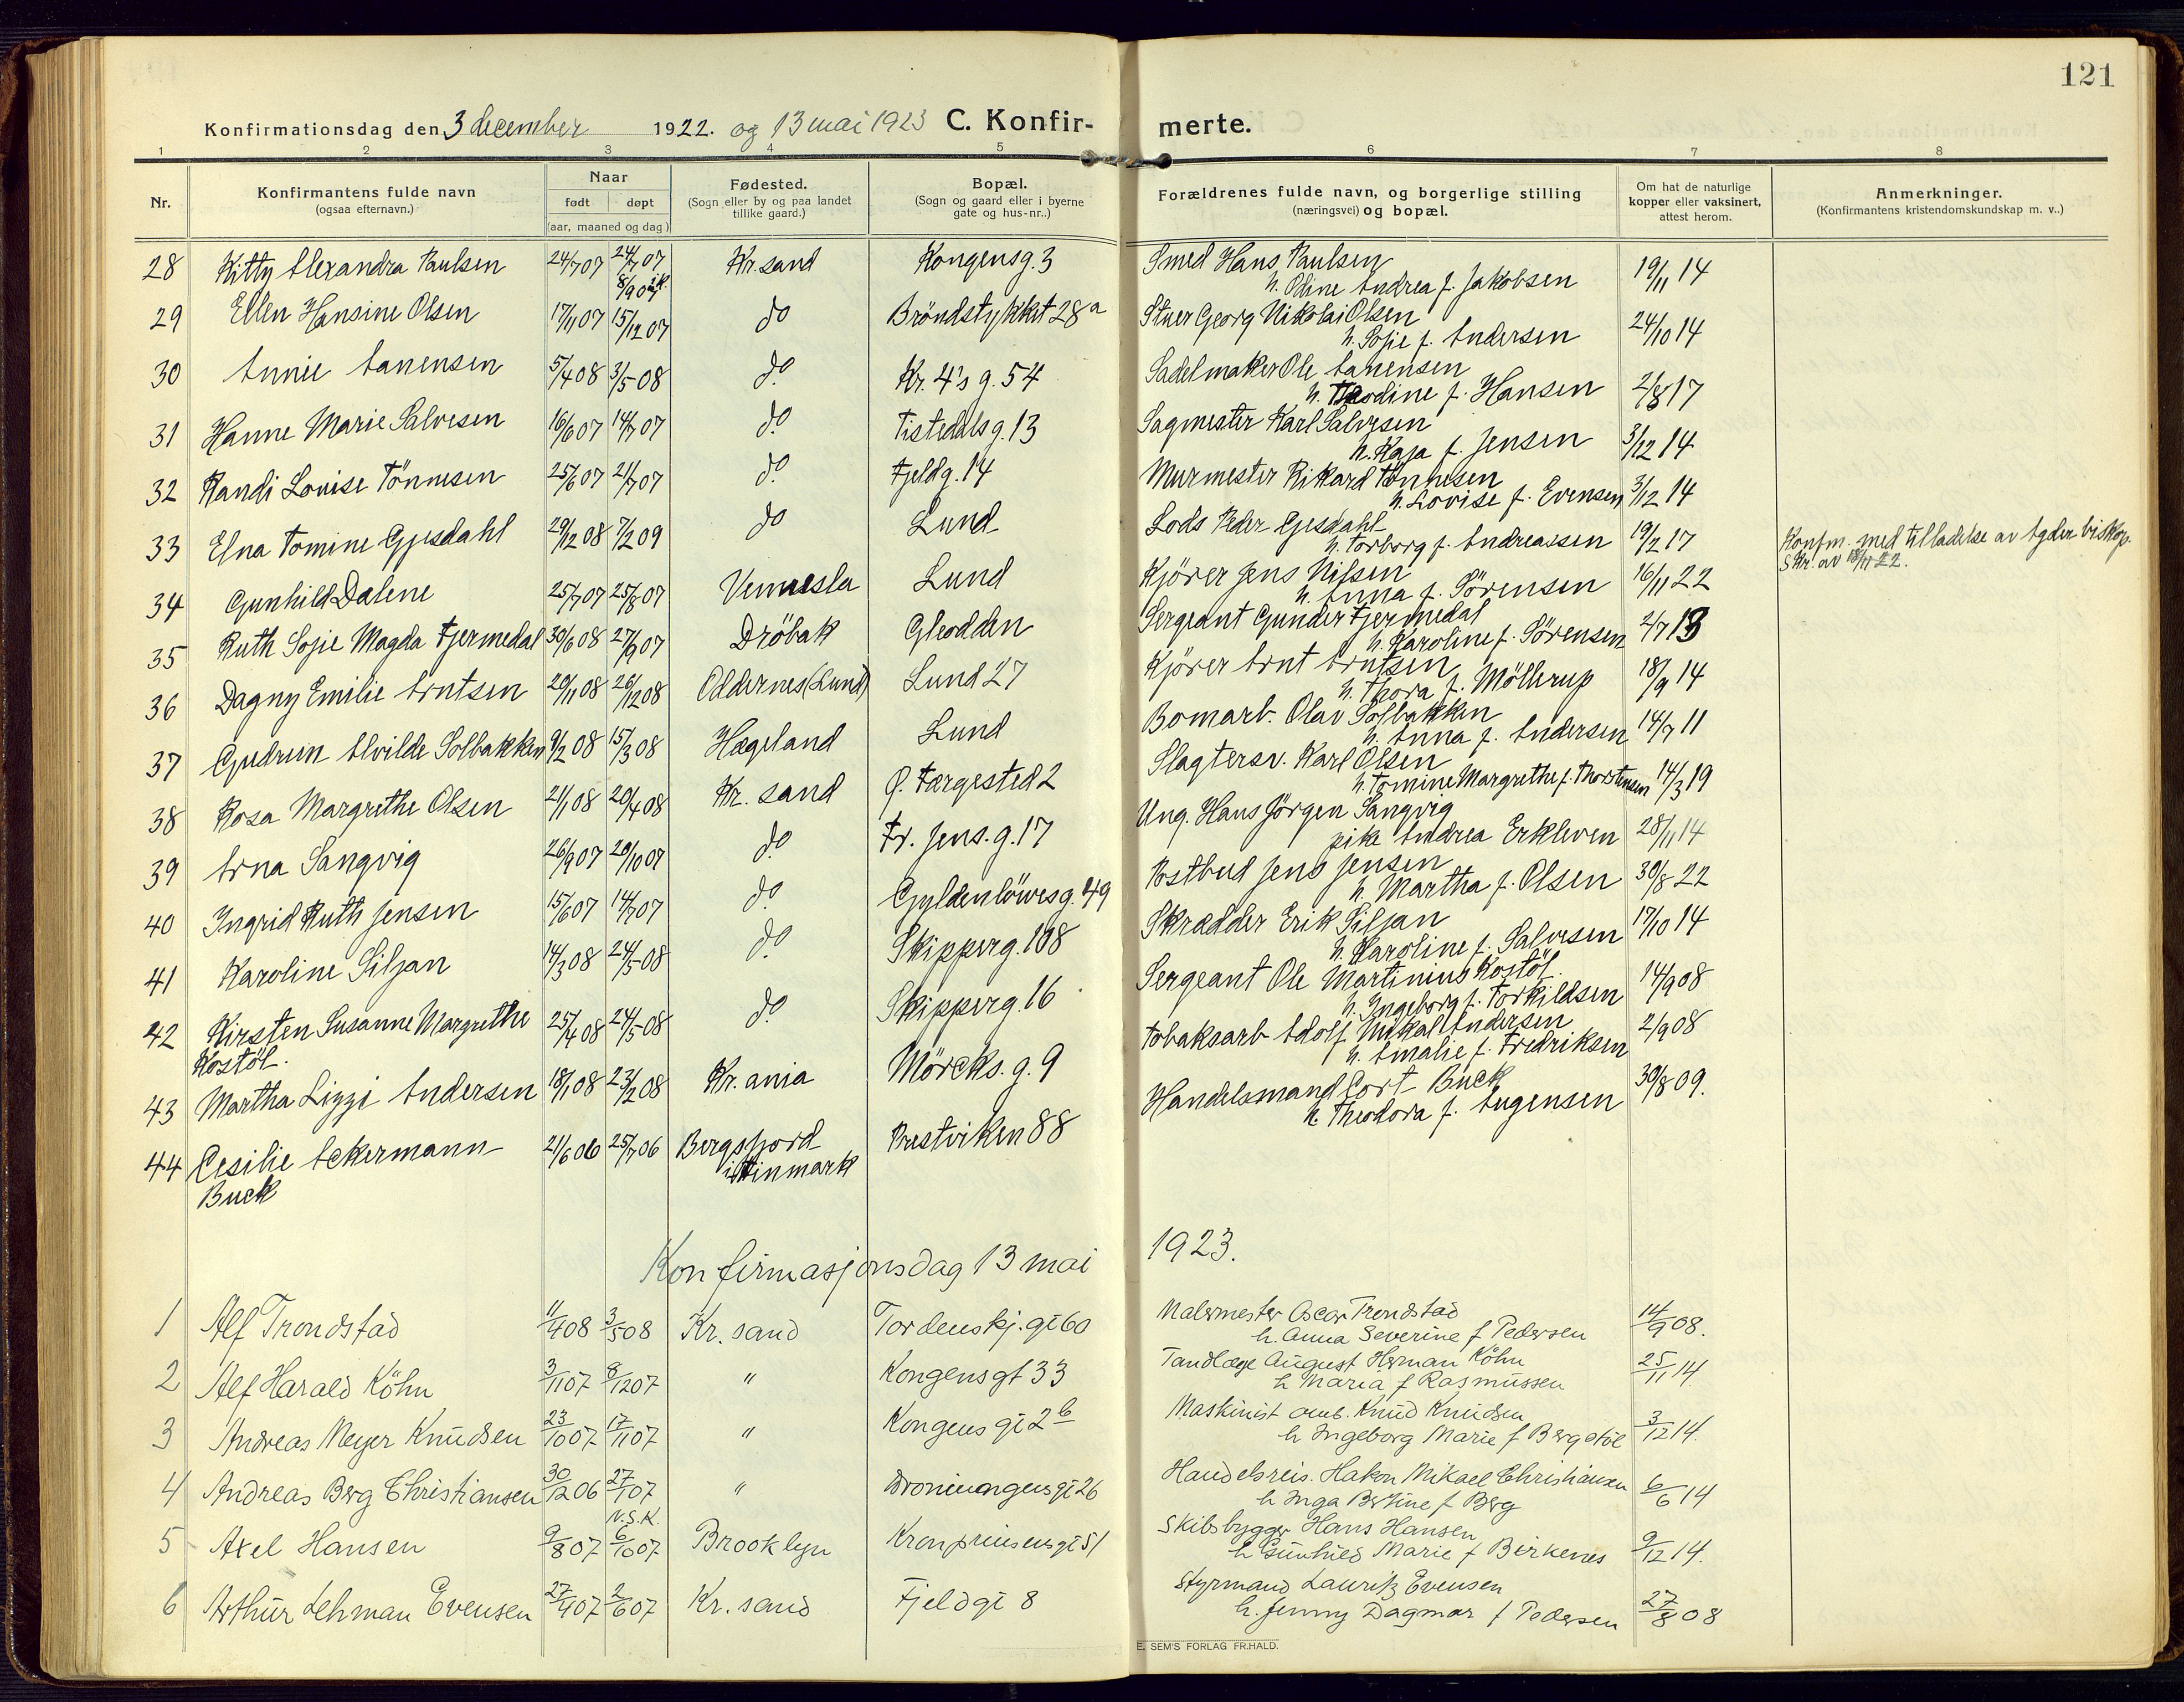 121
Konfirmationsdag den 3 december 1922. og 13 mai 1923 C. Konfir- merte.
1 2 3 4 5 6 7 8
Nr. Konfirmantens fulde navn (ogsaa efternavn.) Naar født døpt (aar, maaned og dag) Fødested. (Sogn eller by og paa landet tillike gaard.) Bopæl. (Sogn og gaard eller i byerne gate og hus-nr..) Forældrenes fulde navn, og borgerlige stilling (næringsvei) og bopæl. Om hat de naturlige kopper eller vaksinert, attest herom. Anmerkninger. (Konfirmantens kristendomskundskap m. v..)
28 Kitty Alexandra Paulsen 24/7 07 24/7 07 8/9 07 i k. Kr. sand Kongensg. 3 Smed Hans Paulsen
h. Oline Andrea f. Jakobsen 19/11 14
29 Ellen Hansine Olsen 17/11 07 15/12 07 do Bröndstykket 28a Stuer Georg Nikolai Olsen
h. Sofie f. Andersen 24/10 14
30 Annie Aanensen 5/4 08 3/5 08 do Kr. 4's g. 54 Sadelmaker Ole Aanensen
h. Theodine f. Hansen 2/8 17
31 Hanne Marie Salvesen 16/6 07 14/7 07 do Tistedalsg. 13 Sagmester Karl Salvesen
h. Kaja f. Jensen 3/12 14
32 Randi Louise Tönnesen 25/6 07 21/7 07 do Fjeldg. 14 Murmester Rikard Tönnesen
h. Lovise f. Evensen 3/12 14
33 Elna Tomine Gjesdahl 29/12 08 7/2 09 do Lund Lods Peder Gjesdahl
h. Torborg f. Andreassen 19/2 17 Konfm. med tilladelse av Agder biskop.
Skr. av 18/11 22.
34 Gunhild Dalene 25/7 07 25/8 07 Vennesla Lund Kjörer Jens Nilsen
h. Anna f. Sörensen 16/11 22
35 Ruth Sofie Magda Fjermedal 30/6 08 27/9 07 Dröbak Glodden Sergeant Gunder Fjermedal
h. Karoline f. Sörensen 2/7 13
36 Dagny Emilie Arntsen 20/11 08 26/12 08 Oddernes (Lund) Lund 27 Kjörer Arnt Arntsen
h. Thora f. Möllerup 18/9 14
37 Gudrun Alvilde Solbakken 9/2 08 15/3 08 Hægeland Lund Bomarb. Olav Solbakken
h. Anna f. Andersen 14/7 11
38 Rosa Margrethe Olsen 21/1 08 20/4 08 Kr. sand Ø. Færgested 2 Slagtersv. Karl Olsen
h. Tomine Margrethe f. Thorstensen 14/3 19
39 Arna Sangvig 26/9 07 20/10 07 do Fr. Jens. g. 17 Ung. Hans Jörgen Sangvig
pike Andrea Erkleven 28/11 14
40 Ingrid Ruth Jensen 15/6 07 14/7 07 do Gyldenlöwesg. 49 Postbud Jens Jensen
h. Martha f. Olsen 30/8 22
41 Karoline Siljan 14/3 08 24/5 08 do Skipperg. 108 Skrædder Erik Siljan
h. Karoline f. Salvesen 17/10 14
42 Kirsten Susanne Margrethe Kostöl. 25/4 08 24/5 08 do Skipperg. 16 Sergeant Ole Martinius Kostöl.
h. Ingeborg f. Torkildsen 14/9 08
43 Martha Lizzi Andersen 18/1 08 23/2 08 Kr. ania Mörcks. g. 9 Tobaksarb Adolf Mikal Andersen
h. Amalie f. Fredriksen 2/9 08
44 Cesilie Ackermann Buck 21/6 06 25/7 06 Bergsfjord i Finmark Prestviken 88 Handelsmand Cort Buck
h. Theodora f. Augensen 30/8 09.
Konfirmasjonsdag 13 mai 1923.
1 Alf Trondstad 11/4 08 3/5 08 Kr. sand Tordenskj. gt 60 Malermester Oscar Trondstad
h. Anna Severine f Pedersen 14/9 08.
2 Alf Harald Köhn 3/11 07 8/12 07 " Kongensgt 33 Tandlæge August Herman Köhn
h Maria f Rasmussen 25/11 14.
3 Andreas Meyer Knudsen 23/10 07 17/11 07 " Kongens gt 2b Maskinist omb. Knud Knudsen
h Ingeborg Marie f Bergstöl 3/12 14.
4 Andreas Berg Christiansen 30/12 06 27/1 07 " Dronningensgt 26 Handelsreis. Hakon Mikael Christiansen
h Inga Bertine f Berg 6/6 14
5 Axel Hansen 9/8 07 N.S.K. 6/10 07 Brooklyn Kronprinsensgt 51 Skibsbygger Hans Hansen
h Gunhild Marie f Birkenes 9/12 14.
6 Arthur Lehman Evensen 27/4 07 2/6 07 Kr. sand Fjeldgt 8 Styrmand Lauritz Evensen
h. Jenny Dagmar f Pedersen 27/8 08
E. SEM'S FORLAG FR.HALD.